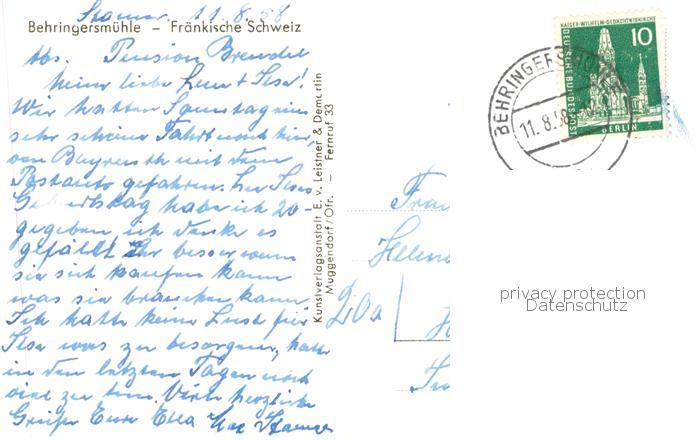 11.8.58
Behringersmühle – Fränkische Schweiz
Abs. Pension Brendel
Meine liebe Leni & Ilse!
Wir hatten Samstag ein
sehr schöne Fahrt nach hier,
von Bayreuth mit dem
Postauto gefahren. Zu Ilses
Geburtstag habe ich 20-
gegeben, ich denke es
gefällt Ihr besser wenn
sie sich kaufen kann
was sie brauchen kann.
Ich hatte keine Lust für
Ilse was zu besorgen, hatte
in den letzten Tagen noch
viel zu tun. Viele herzliche
Grüße Eure Ella
Kunstverlagsanstalt E. v. Leistner & Demartin
Muggendorf/Ofr. – Fernruf 33
KAISER-WILHELM-GEDÄCHTNISKIRCHE
10
DEUTSCHE BUNDESPOST
BERLIN
BEHRINGERSMÜHLE
11.8.58
Frau
Helene
20a
privacy protection
Datenschutz